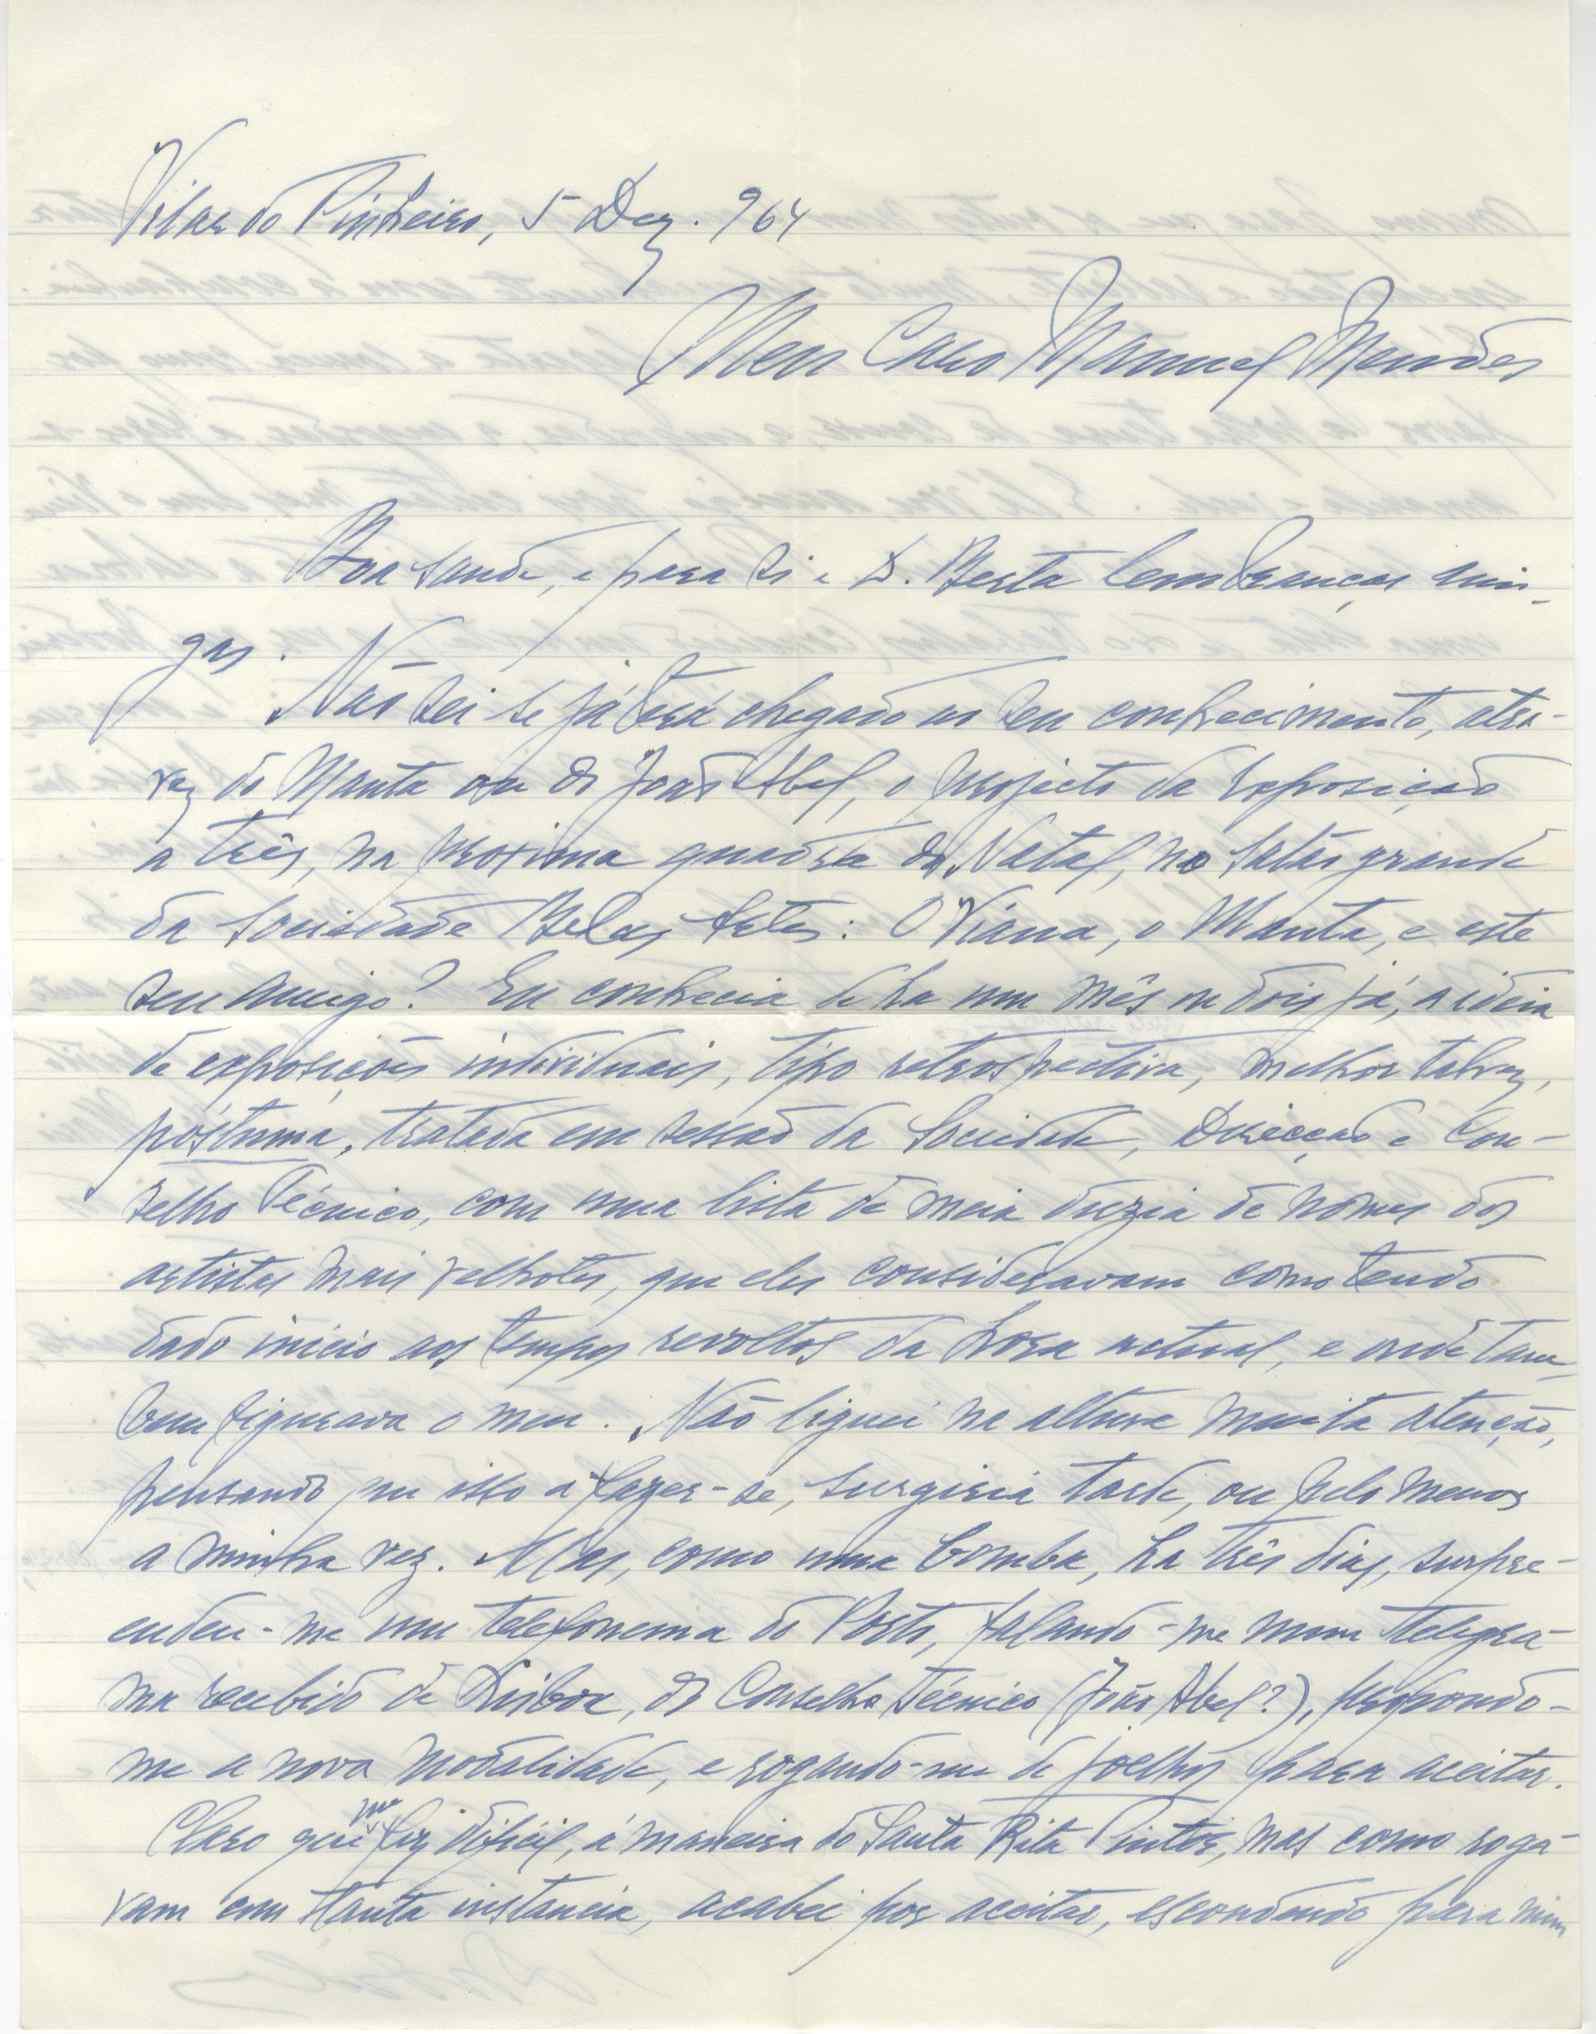 Vilar do Pinheiro, 5 Dez. 964
Meu Caro Manuel Mendes
Boa saude, e para si e D. Berta lembranças ami-
gas.
Não sei se já terá chegado ao seu conhecimento, atra-
vez do Manta ou do João Abel, o projecto da exposição
a três, na proxima quadra do Natal, no salão grande
da Sociedade Belas Artes: O Viana, o Manta, e este
seu amigo? Eu conhecia de ha um mês ou dois já, a ideia
de exposições individuais, tipo retrospectiva, melhor talvez,
póstuma, tratada em sessão da Sociedade, Direcção e Con-
selho Técnico, com uma lista de meia duzia de nomes dos
artistas mais velhotes, que eles consideravam como tendo
dado inicio aos tempos revoltos da hora actual, e onde tam-
bem figurava o meu. Não liguei na altura muita atenção,
pensando que isso a fazer-se, surgiria tarde, ou pelo menos
a minha vez. Mas, como uma bomba, ha três dias, surpre-
endeu-me um telefonema do Porto, falando-me num telegra-
ma recebido de Lisboa, do Conselho Técnico (João Abel?), propondo-
me a nova modalidade, e rogando-me de joelhos para aceitar.
Claro que me fiz dificil, á maneira do Santa Rita Pintor, mas como roga-
vam com tanta instancia, acabei por aceitar, escondendo para mim